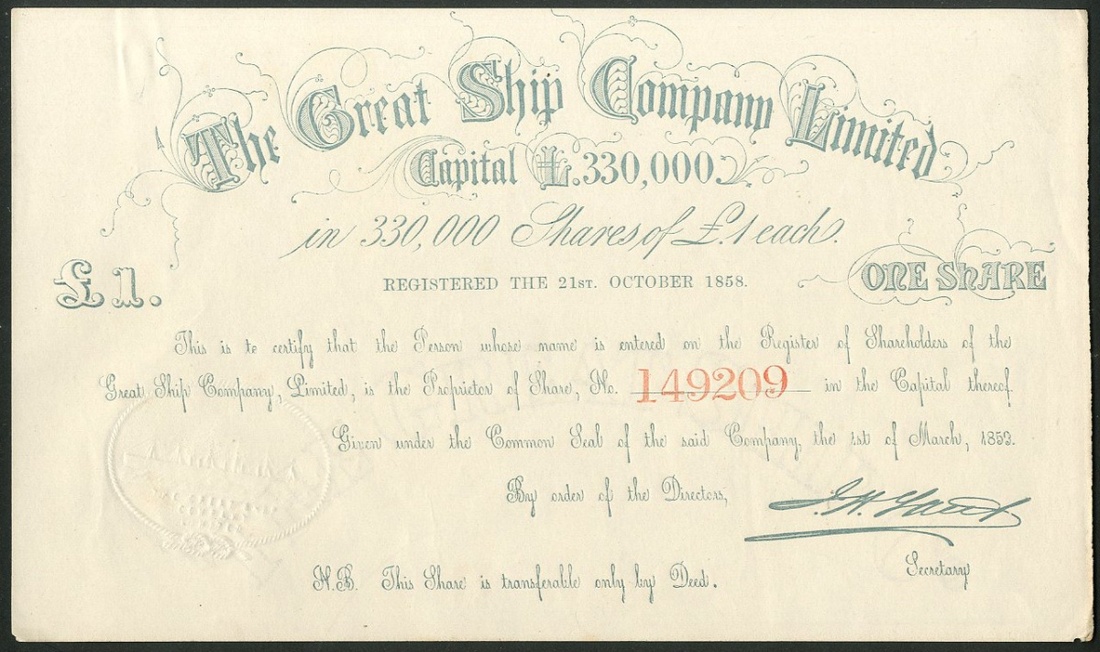 The Great Ship Company Limited
Capital £.330,000.
in 330,000 Shares of £.1 each.
£1.
REGISTERED THE 21ST. OCTOBER 1858.
ONE ShARE
This is to certify that the Person whose name is entered on the Register of Shareholders of the
Great Ship Company, Limited, is the Proprietor of Share, No. 149209 in the Capital thereof.
Given under the Common Seal of the said Company, the 1st of March, 1859.
By order of the Directors,
Secretary
N.B. This Share is transferable only by Deed.